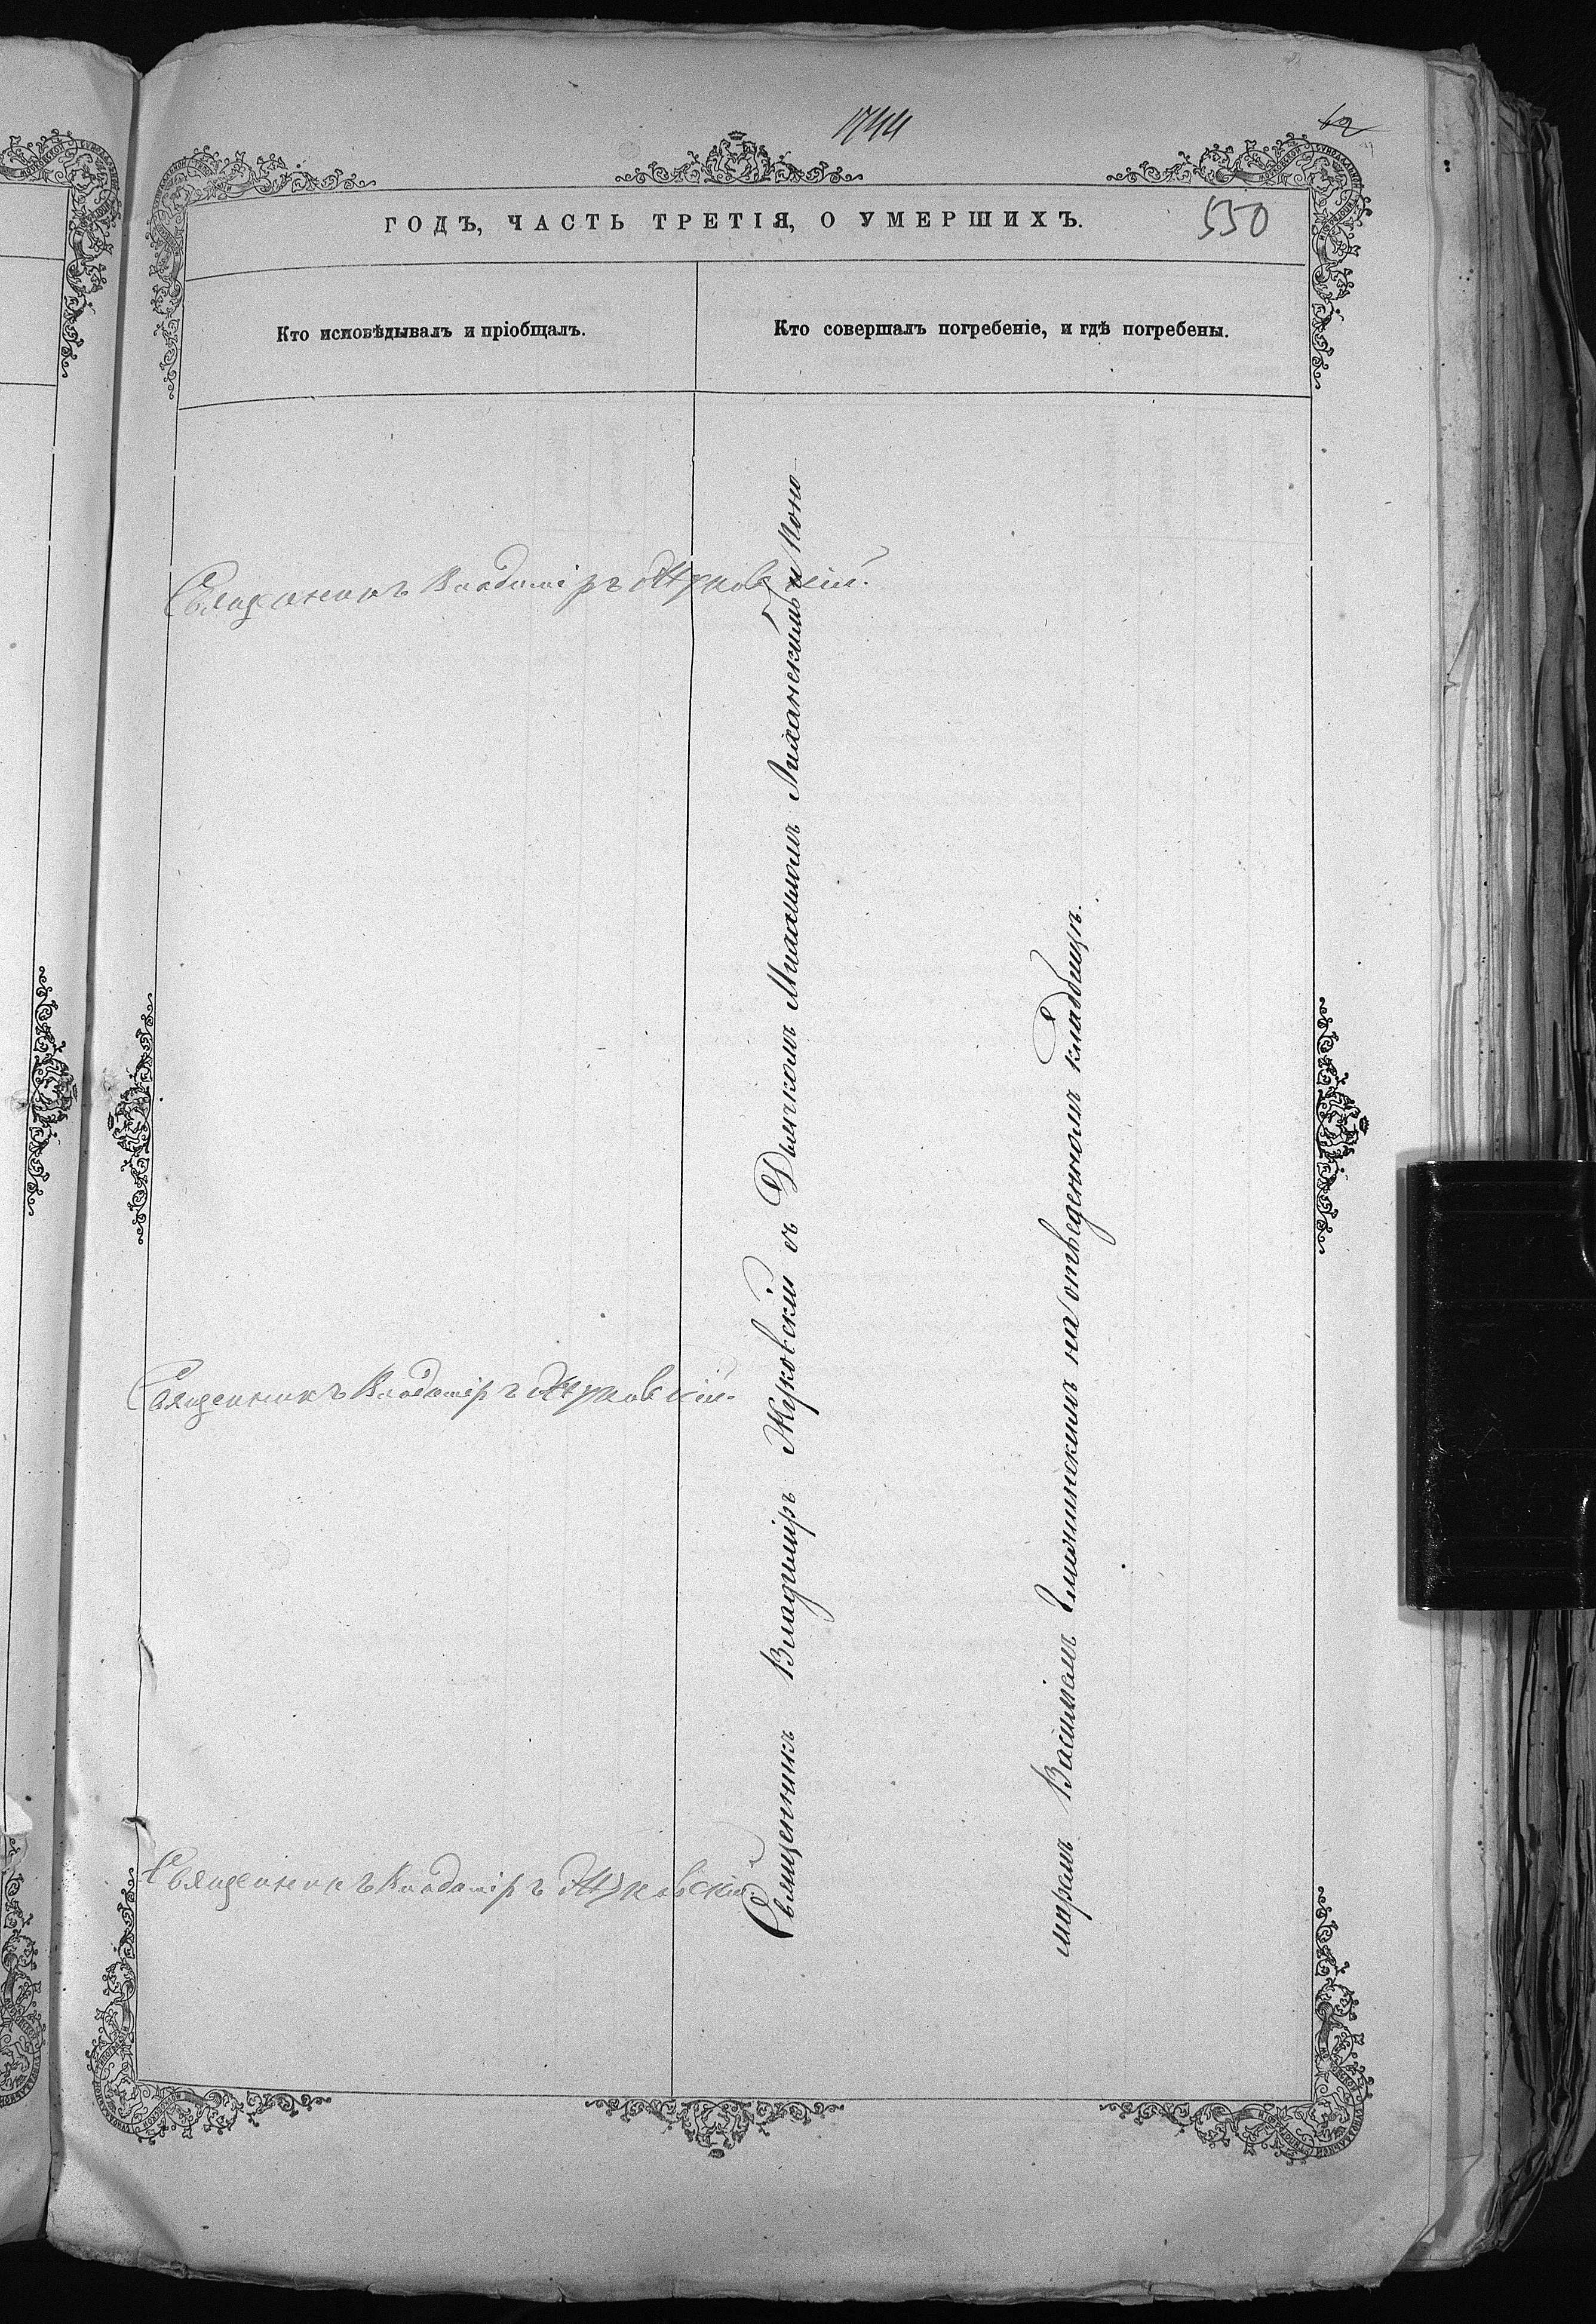 1744
62
550
ГОДЪ, ЧАСТЬ ТРЕТІЯ, О УМЕРШИХЪ.
Кто исповѣдывалъ и пріобщалъ.
Кто совершалъ погребеніе, и гдѣ погребены.
Священникъ Владиміръ Жуковскій.
Священникъ Владиміръ Жуковскій.
Священникъ Владиміръ Жуковскій.
Священникъ Владиміръ Жуковскій съ Дьячкомъ Михаиломъ Лиханскимъ и Поно-
маремъ Василіемъ на отведенномъ кладбищѣ.